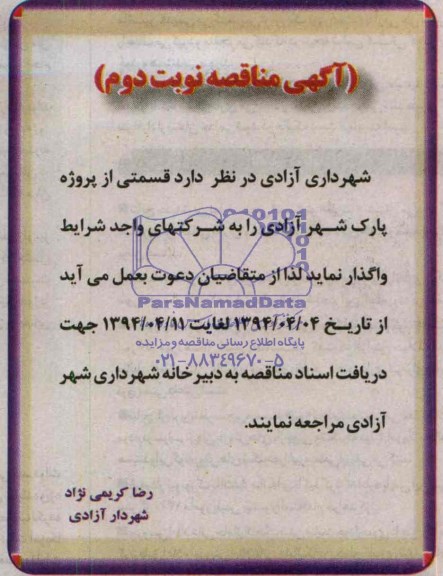 (آگهی مناقصه نوبت دوم)
شهرداری آزادی در نظر دارد قسمتی از پروژه
پارک شهر آزادی را به شرکتهای واجد شرایط
واگذار نماید لذا از متقاضیان دعوت بعمل می آید
از تاریخ ۱۳۹۴/۰۴/۰۴ لغایت ۱۳۹۴/۰۴/۱۱ جهت
دریافت اسناد مناقصه به دبیرخانه شهرداری شهر
آزادی مراجعه نمایند.
رضا کریمی نژاد
شهردار آزادی
ParsNamadData
پایگاه اطلاع رسانی مناقصه و مزایده
۰۲۱-۸۸۳۴۹۶۷۰-۵